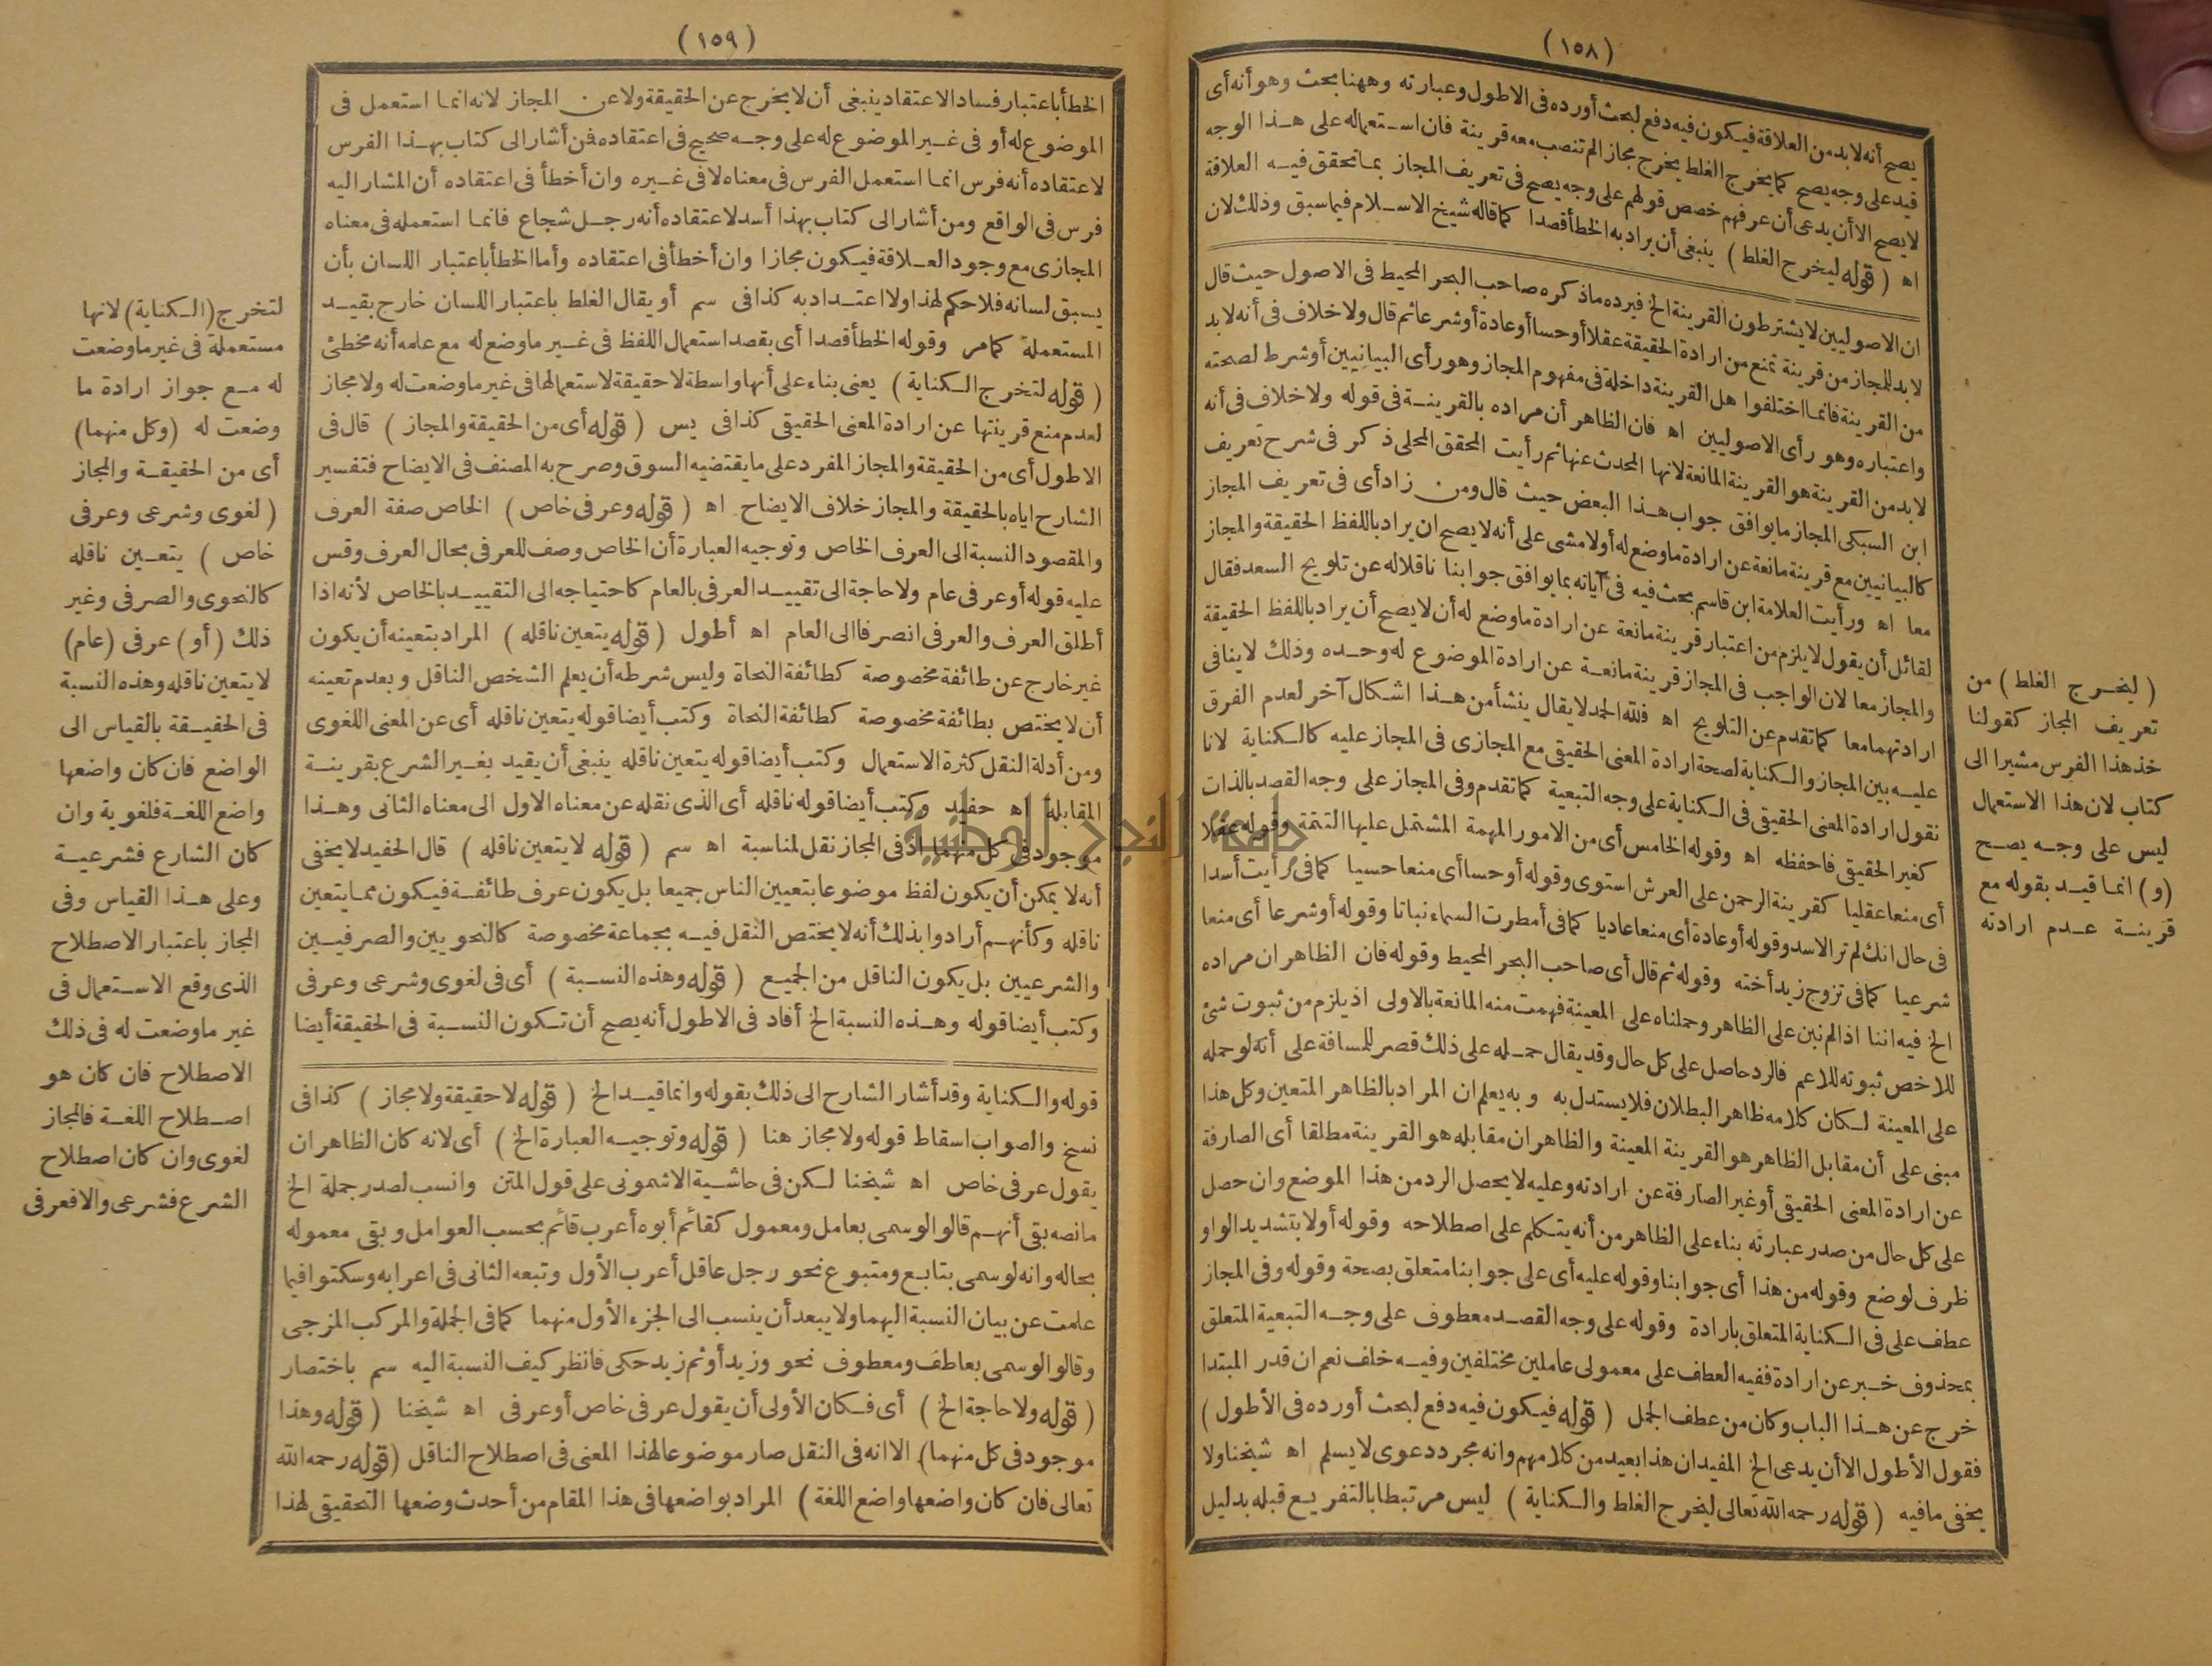 (١٥٨)
يصح أنه لا بد من العلاقة فيكون فيه دفع لبحث أورده فى الاطول وعبارته وههنا بحث وهو أنه أى
قيد على وجه يصح كما يخرج الغلط يخرج مجازا لم تنصب معه قرينة فان استعماله على هذا الوجه
لا يصح الا أن يدعى أن عرفهم خصص قولهم على وجه يصح فى تعريف المجاز بما تحقق فيه العلاقة
اه (قوله ليخرج الغلط) ينبغى أن يراد به الخطأ قصدا كما قاله شيخ الاسلام فيما سبق وذلك لان
ان الاصوليين لا يشترطون القرينة الخ فيرده ماذكره صاحب البحر المحيط فى الاصول حيث قال
لا بد للمجاز من قرينة تمنع من ارادة الحقيقة عقلا أو حسا أو عادة أو شرعا ثم قال ولا خلاف فى أنه لا بد
من القرينة فانما اختلفوا هل القرينة داخلة فى مفهوم المجاز وهو رأى البيانيين أو شرط لصحته
واعتباره وهو رأى الاصوليين اه فان الظاهر أن مراده بالقرينة فى قوله ولا خلاف فى أنه
لا بد من القرينة هو القرينة المانعة لانها المحدث عنها ثم رأيت المحقق المحلى ذكر فى شرح تعريف
ابن السبكى المجاز ما يوافق جواب هذا البعض حيث قال ومن زاد أى فى تعريف المجاز
كالبيانيين مع قرينة مانعة عن ارادة ما وضع له أولا مشى على أنه لا يصح ان يراد باللفظ الحقيقة والمجاز
معا اه ورأيت العلامة ابن قاسم بحث فيه فى آياته بما يوافق جوابنا ناقلا له عن تلويح السعد فقال
لقائل أن يقول لا يلزم من اعتبار قرينة مانعة عن ارادة ما وضع له أن لا يصح أن يراد باللفظ الحقيقة
والمجاز معا لان الواجب فى المجاز قرينة مانعة عن ارادة الموضوع له وحده وذلك لا ينافى
ارادتهما معا كما تقدم عن التلويح اه فلله الحمد لا يقال ينشأ من هذا اشكال آخر لعدم الفرق
عليه بين المجاز والكناية لصحة ارادة المعنى الحقيقى مع المجازى فى المجاز عليه كالكناية لانا
نقول ارادة المعنى الحقيقى فى الكناية على وجه التبعية كما تقدم وفى المجاز على وجه القصد بالذات
كغير الحقيقى فاحفظه اه وقوله الخامس أى من الامور المهمة المشتمل عليها التتمة وقوله عقلا
أى منعا عقليا كقرينة الرحمن على العرش استوى وقوله أو حسا أى منعا حسيا كما فى رأيت أسدا
فى حال انك لم تر الاسد وقوله أو عادة أى منعا عاديا كما فى أمطرت السماء نباتا وقوله أو شرعا أى منعا
شرعيا كما فى تزوج زيد أخته وقوله ثم قال أى صاحب البحر المحيط وقوله فان الظاهر ان مراده
الخ فيه اننا اذا لم نبن على الظاهر وحملناه على المعينة فهمت منه المانعة بالاولى اذ يلزم من ثبوت شئ
للاخص ثبوته للاعم فالرد حاصل على كل حال وقد يقال حمله على ذلك قصر للمسافة على أنه لو حمله
على المعينة لكان كلامه ظاهر البطلان فلا يستدل به وبه يعلم ان المراد بالظاهر المتعين وكل هذا
مبنى على أن مقابل الظاهر هو القرينة المعينة والظاهر ان مقابله هو القرينة مطلقا أى الصارفة
عن ارادة المعنى الحقيقى أو غير الصارفة عن ارادته وعليه لا يحصل الرد من هذا الموضع وان حصل
على كل حال من صدر عبارته بناء على الظاهر من أنه يتكلم على اصطلاحه وقوله أولا بتشديد الواو
ظرف لوضع وقوله من هذا أى جوابنا وقوله عليه أى على جوابنا متعلق بصحة وقوله وفى المجاز
عطف على فى الكناية المتعلق بارادة وقوله على وجه القصد معطوف على وجه التبعية المتعلق
بمحذوف خبر عن ارادة ففيه العطف على معمولى عاملين مختلفين وفيه خلف نعم ان قدر المبتدا
خرج عن هذا الباب وكان من عطف الجمل (قوله فيكون فيه دفع لبحث أورده فى الأطول)
فقول الأطول الا أن يدعى الخ المفيد ان هذا بعيد من كلامهم وانه مجرد دعوى لا يسلم اه شيخنا ولا
يخفى مافيه (قوله رحمه الله تعالى ليخرج الغلط والكناية) ليس مرتبطا بالتفريع قبله بدليل
(ليخرج الغلط) من
تعريف المجاز كقولنا
خذ هذا الفرس مشيرا الى
كتاب لان هذا الاستعمال
ليس على وجه يصح
(و) انما قيد بقوله مع
قرينة عدم ارادته
(١٥٩)
الخطأ باعتبار فساد الاعتقاد ينبغى أن لا يخرج عن الحقيقة ولا عن المجاز لانه انما استعمل فى
الموضوع له أو فى غير الموضوع له على وجه صحيح فى اعتقاده فمن أشار الى كتاب بهذا الفرس
لاعتقاده أنه فرس انما استعمل الفرس فى معناه لا فى غيره وان أخطأ فى اعتقاده أن المشار اليه
فرس فى الواقع ومن أشار الى كتاب بهذا أسد لاعتقاده أنه رجل شجاع فانما استعمله فى معناه
المجازى مع وجود العلاقة فيكون مجازا وان أخطأ فى اعتقاده وأما الخطأ باعتبار اللسان بأن
يسبق لسانه فلا حكم لهذا ولا اعتداد به كذا فى سم أو يقال الغلط باعتبار اللسان خارج بقيد
المستعملة كما مر وقوله الخطأ قصدا أى بقصد استعمال اللفظ فى غير ما وضع له مع علمه أنه مخطئ
(قوله لتخرج الكناية) يعنى بناء على أنها واسطة لا حقيقة لاستعمالها فى غير ما وضعت له ولا مجاز
لعدم منع قرينتها عن ارادة المعنى الحقيقى كذا فى يس (قوله أى من الحقيقة والمجاز) قال فى
الاطول أى من الحقيقة والمجاز المفرد على ما يقتضيه السوق وصرح به المصنف فى الايضاح فتفسير
الشارح اياه بالحقيقة والمجاز خلاف الايضاح اه (قوله وعرفى خاص) الخاص صفة العرف
والمقصود النسبة الى العرف الخاص وتوجيه العبارة أن الخاص وصف للعرفى بحال العرف وقس
عليه قوله أو عرفى عام ولا حاجة الى تقييد العرفى بالعام كاحتياجه الى التقييد بالخاص لأنه اذا
أطلق العرف والعرفى انصرفا الى العام اه أطول (قوله يتعين ناقله) المراد بتعينه أن يكون
غير خارج عن طائفة مخصوصة كطائفة النحاة وليس شرطه أن يعلم الشخص الناقل وبعدم تعينه
أن لا يختص بطائفة مخصوصة كطائفة النحاة وكتب أيضا قوله يتعين ناقله أى عن المعنى اللغوى
ومن أدلة النقل كثرة الاستعمال وكتب أيضا قوله يتعين ناقله ينبغى أن يقيد بغير الشرع بقرينة
المقابلة اه حفيد وكتب أيضا قوله ناقله أى الذى نقله عن معناه الاول الى معناه الثانى وهذا
موجود فى كل منهما اذ فى المجاز نقل لمناسبة اه سم (قوله لا يتعين ناقله) قال الحفيد لا يخفى
أنه لا يمكن أن يكون لفظ موضوعا بتعيين الناس جميعا بل يكون عرف طائفة فيكون مما يتعين
ناقله وكأنهم أرادوا بذلك أنه لا يختص النقل فيه بجماعة مخصوصة كالنحويين والصرفيين
والشرعيين بل يكون الناقل من الجميع (قوله وهذه النسبة) أى فى لغوى وشرعى وعرفى
وكتب أيضا قوله وهذه النسبة الخ أفاد فى الاطول أنه يصح أن تكون النسبة فى الحقيقة أيضا
قوله والكناية وقد أشار الشارح الى ذلك بقوله وانما قيد الخ (قوله لا حقيقة ولا مجاز) كذا فى
نسخ والصواب اسقاط قوله ولا مجاز هنا (قوله وتوجيه العبارة الخ) أى لانه كان الظاهر ان
يقول عرفى خاص اه شيخنا لكن فى حاشية الاشمونى على قول المتن وانسب لصدر جملة الخ
مانصه بقى أنهم قالوا لو سمى بعامل ومعمول كقائم أبوه أعرب قائم بحسب العوامل وبقى معموله
بحاله وانه لو سمى بتابع ومتبوع نحو رجل عاقل أعرب الأول وتبعه الثانى فى اعرابه وسكتوا فيما
علمت عن بيان النسبة اليهما ولا يبعد أن ينسب الى الجزء الأول منهما كما فى الجملة والمركب المزجى
وقالوا لو سمى بعاطف ومعطوف نحو وزيد أو ثم زيد حكى فانظر كيف النسبة اليه سم باختصار
(قوله ولا حاجة الخ) أى فكان الأولى أن يقول عرفى خاص أو عرفى اه شيخنا (قوله وهذا
موجود فى كل منهما) الا انه فى النقل صار موضوعا لهذا المعنى فى اصطلاح الناقل (قوله رحمه الله
تعالى فان كان واضعها واضع اللغة) المراد بواضعها فى هذا المقام من أحدث وضعها التحقيقى لهذا
لتخرج (الكناية) لانها
مستعملة فى غير ما وضعت
له مع جواز ارادة ما
وضعت له (وكل منهما)
أى من الحقيقة والمجاز
(لغوى وشرعى وعرفى
خاص) يتعين ناقله
كالنحوى والصرفى وغير
ذلك (أو) عرفى (عام)
لا يتعين ناقله وهذه النسبة
فى الحقيقة بالقياس الى
الواضع فان كان واضعها
واضع اللغة فلغوية وان
كان الشارع فشرعية
وعلى هذا القياس وفى
المجاز باعتبار الاصطلاح
الذى وقع الاستعمال فى
غير ما وضعت له فى ذلك
الاصطلاح فان كان هو
اصطلاح اللغة فالمجاز
لغوى وان كان اصطلاح
الشرع فشرعى والا فعرفى
جامعة النجاح الوطنية